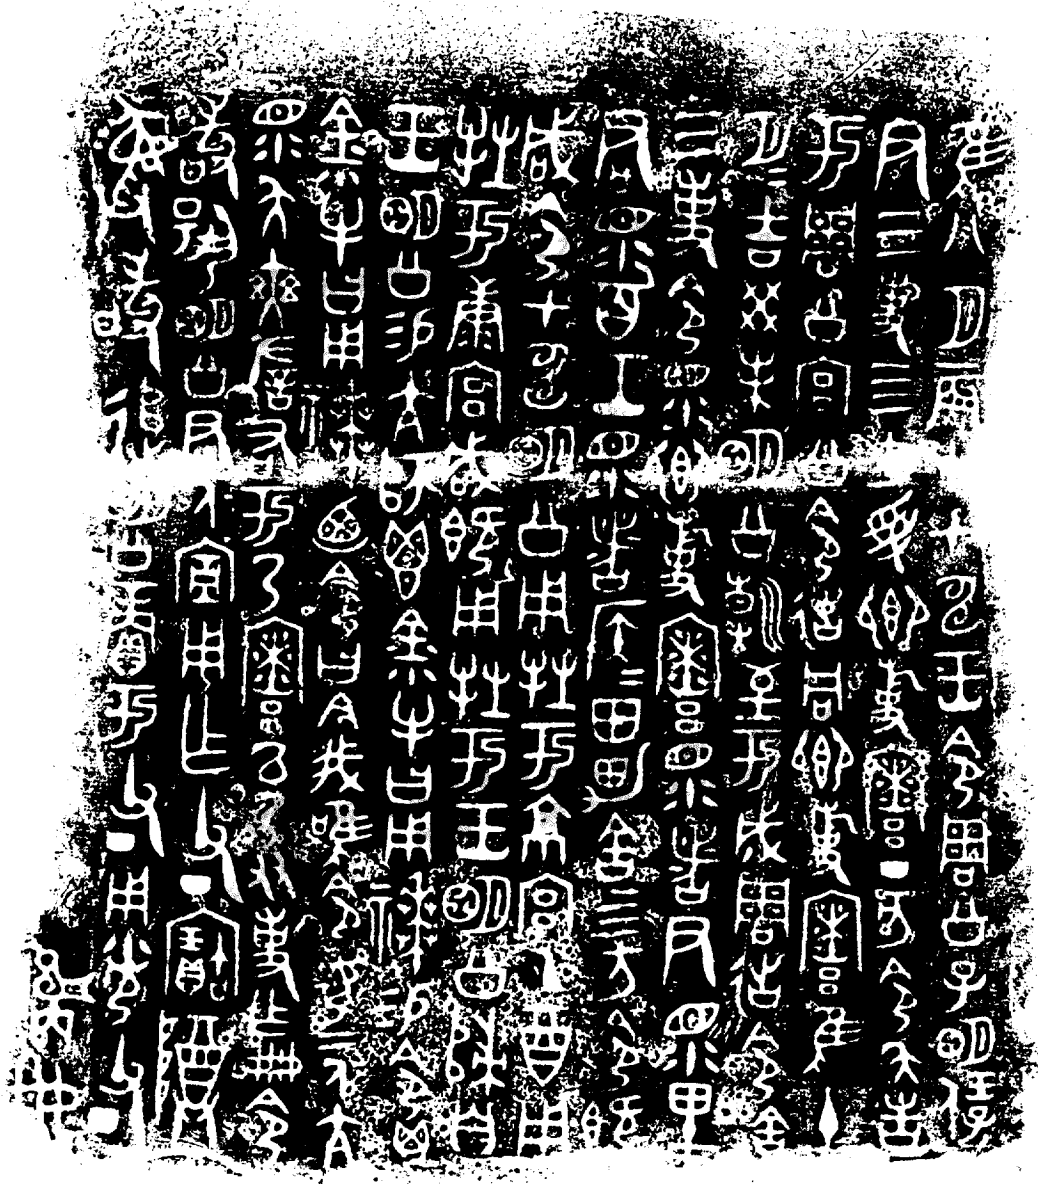 隹八月辰才甲申王令周公子明保
尹三事四方受卿事寮丁亥令矢告
于周公宮公令𢓊同卿事寮隹十
月月吉癸未明公朝至于成周𢓊令舍
三事令眔卿事寮眔者尹眔里
君眔百工眔者侯=田男舍四方令既
咸令甲申明公用牲于京宮乙酉用
牲于康宮咸既用牲于王明公歸自
王明公易亢師鬯金小牛曰用𥛱易令鬯
金小牛曰用𥛱乃令曰今我唯令女二人亢
眔矢奭左右于乃寮以乃友事乍冊令
敢揚明公尹厥宁用乍父丁寶尊彝
敢追明公賞于父丁用光父丁
冊